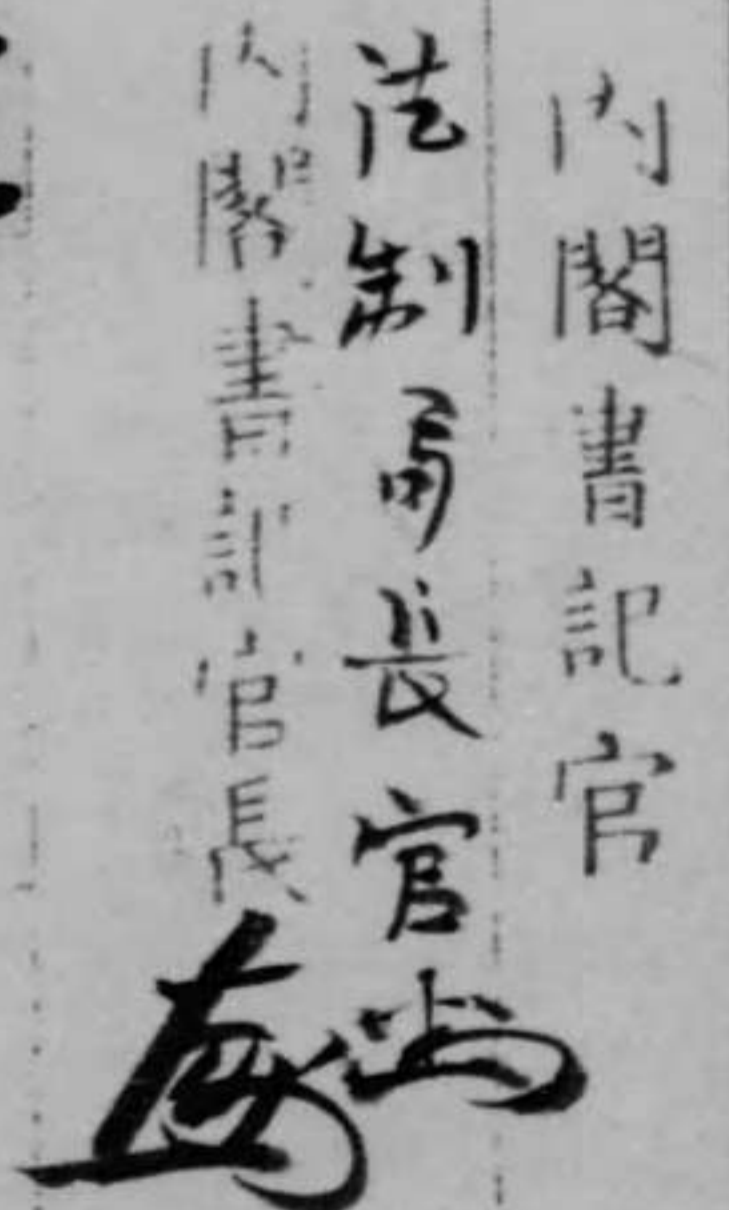 内閣書記官
法制局長官
内閣書記官長